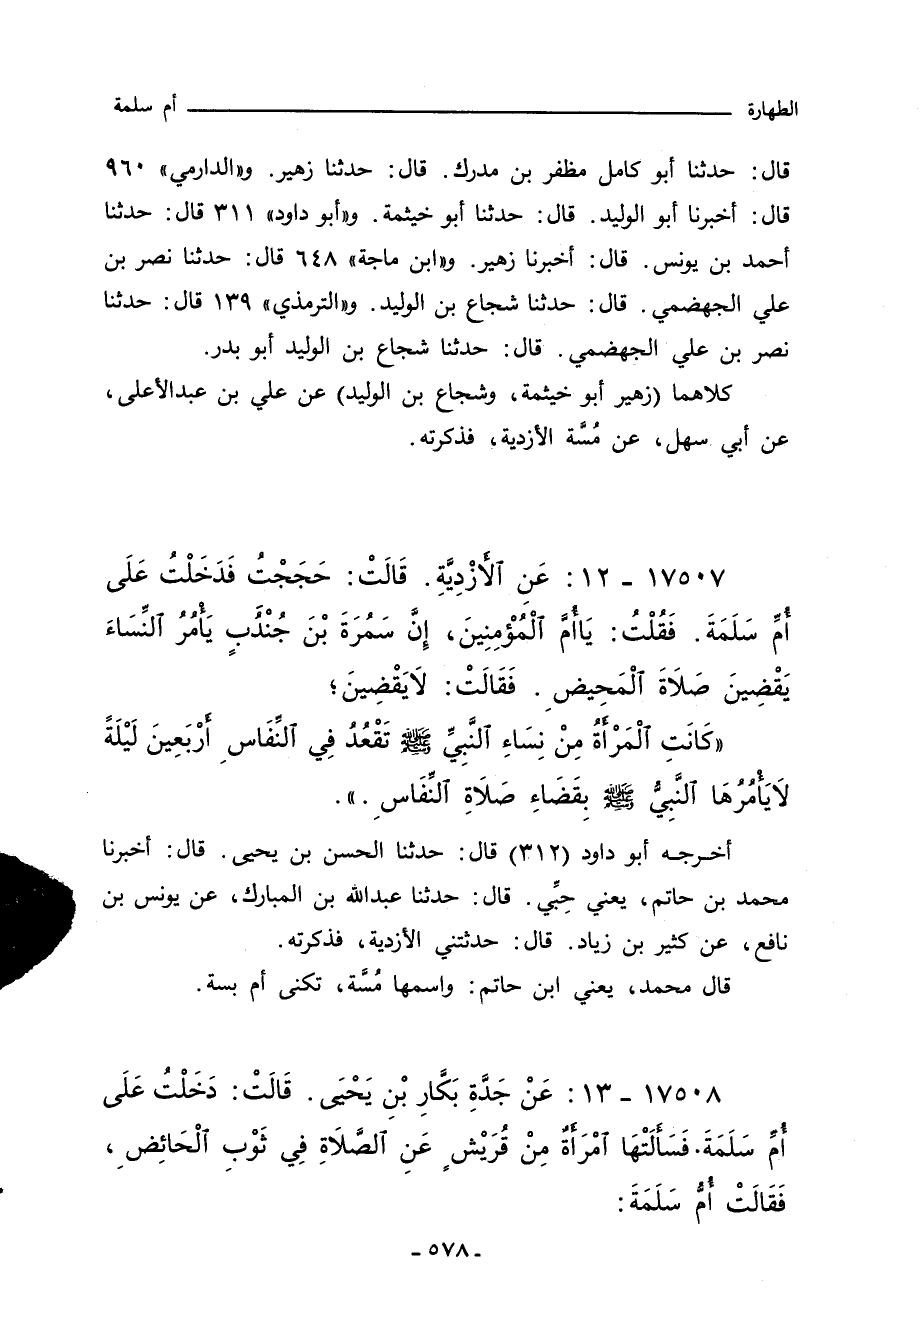 الطهارة ــــــــــ أم سلمة
قال: حدثنا أبو كامل مظفر بن مدرك. قال: حدثنا زهير. و«الدارمي» ٩٦٠
قال: أخبرنا أبو الوليد. قال: حدثنا أبو خيثمة. و«أبو داود» ٣١١ قال: حدثنا
أحمد بن يونس. قال: أخبرنا زهير. و«ابن ماجة» ٦٤٨ قال: حدثنا نصر بن
علي الجهضمي. قال: حدثنا شجاع بن الوليد. و«الترمذي» ١٣٩ قال: حدثنا
نصر بن علي الجهضمي. قال: حدثنا شجاع بن الوليد أبو بدر.
كلاهما (زهير أبو خيثمة، وشجاع بن الوليد) عن علي بن عبدالأعلى،
عن أبي سهل، عن مُسَّة الأزدية، فذكرته.
١٧٥٠٧ ـ ١٢: عَنِ ٱلْأَزْدِيَّةِ. قَالَتْ: حَجَجْتُ فَدَخَلْتُ عَلَى
أُمِّ سَلَمَةَ. فَقُلْتُ: يَاأُمَّ ٱلْمُؤْمِنِينَ، إِنَّ سَمُرَةَ بْنَ جُنْدُبٍ يَأْمُرُ ٱلنِّسَاءَ
يَقْضِينَ صَلَاةَ ٱلْمَحِيضِ. فَقَالَتْ: لَايَقْضِينَ؛
«كَانَتِ ٱلْمَرْأَةُ مِنْ نِسَاءِ ٱلنَّبِيِّ ﷺ تَقْعُدُ فِي ٱلنِّفَاسِ أَرْبَعِينَ لَيْلَةً
لَايَأْمُرُهَا ٱلنَّبِيُّ ﷺ بِقَضَاءِ صَلَاةِ ٱلنِّفَاسِ.».
أخرجه أبو داود (٣١٢) قال: حدثنا الحسن بن يحيى. قال: أخبرنا
محمد بن حاتم، يعني حِبِّي. قال: حدثنا عبدالله بن المبارك، عن يونس بن
نافع، عن كثير بن زياد. قال: حدثتني الأزدية، فذكرته.
قال محمد، يعني ابن حاتم: واسمها مُسَّة، تكنى أم بسة.
١٧٥٠٨ ـ ١٣: عَنْ جَدَّةِ بَكَّارِ بْنِ يَحْيَى. قَالَتْ: دَخَلْتُ عَلَى
أُمِّ سَلَمَةَ. فَسَأَلَتْهَا ٱمْرَأَةٌ مِنْ قُرَيْشٍ عَنِ ٱلصَّلَاةِ فِي ثَوْبِ ٱلْحَائِضِ،
فَقَالَتْ أُمُّ سَلَمَةَ:
ـ ٥٧٨ ـ